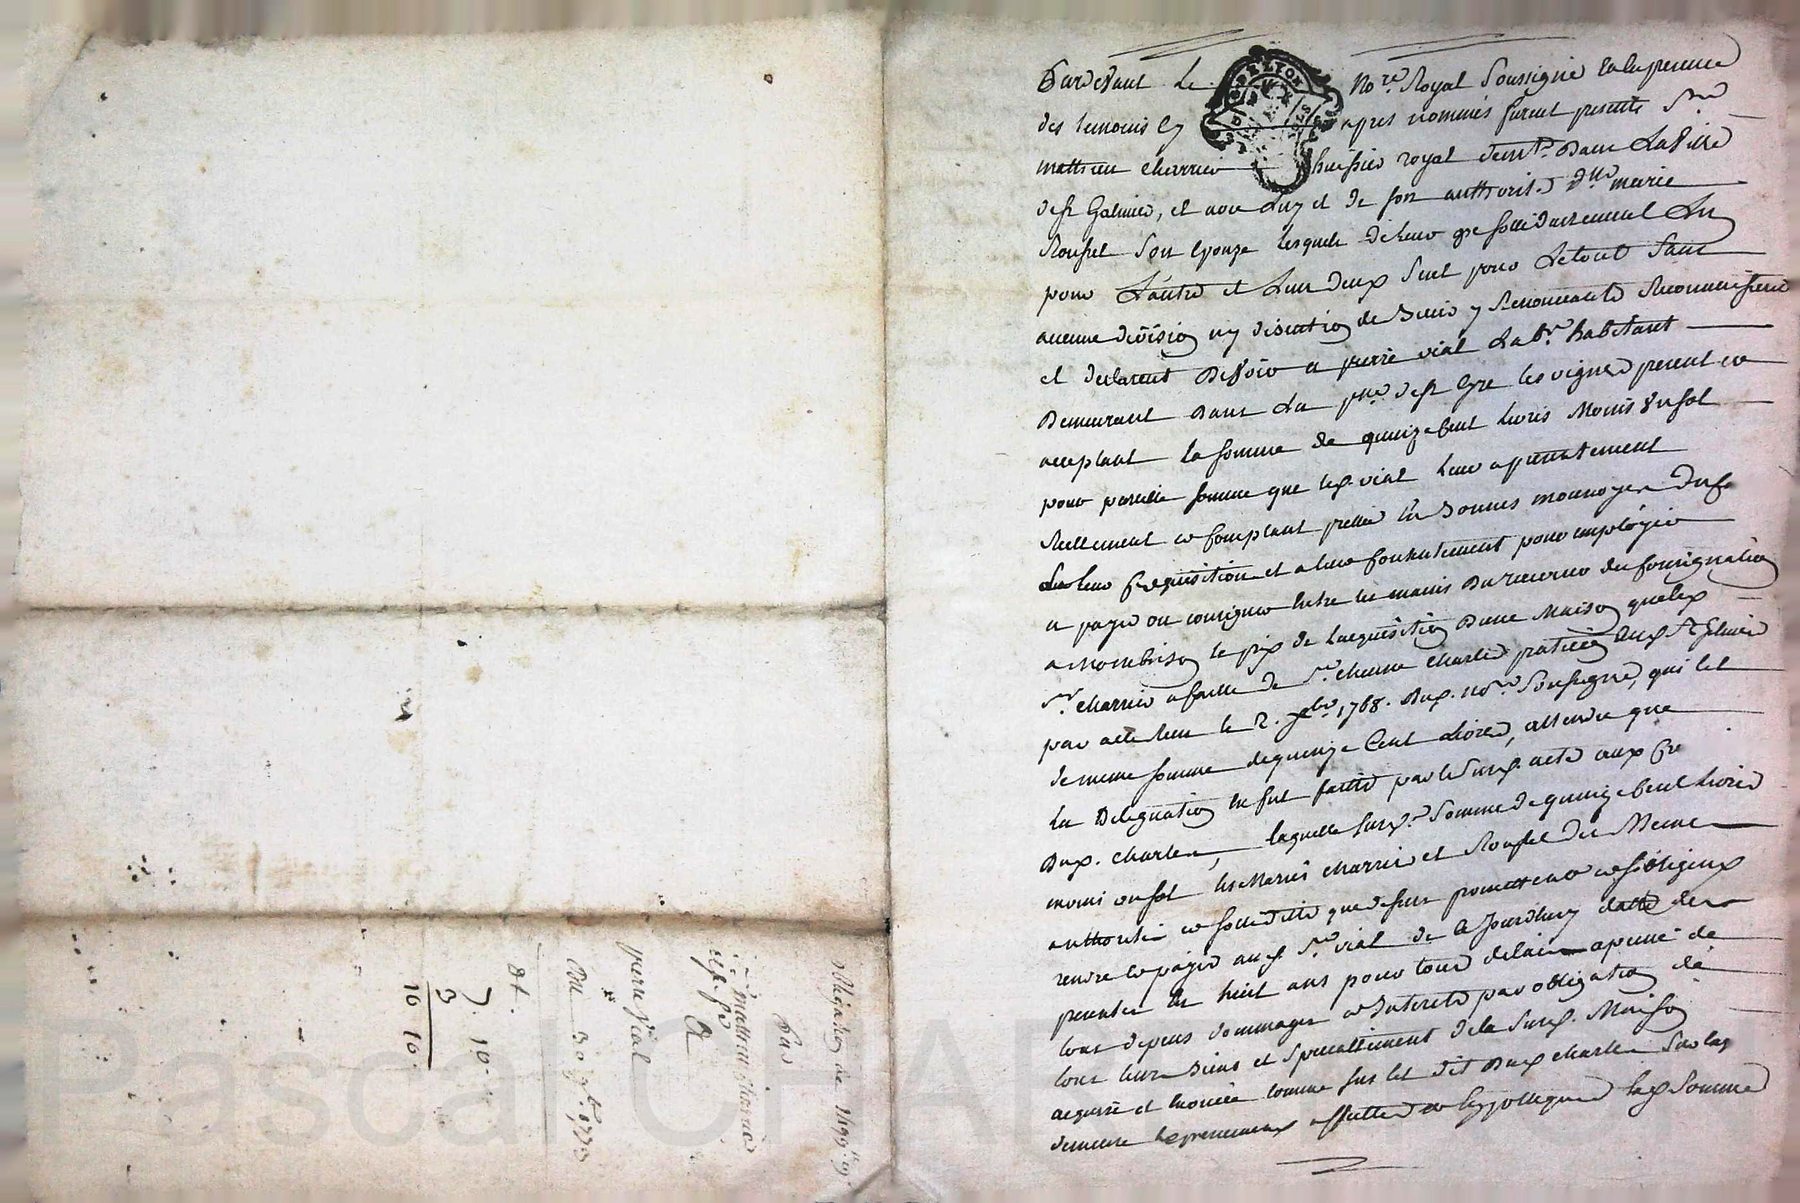 Pardevant Le No.re Royal Soussigné Et en presence
des temoins Cy apres nommés furent presents S.r
mathieu Charrier huissier royal demt. Dans La Ville
de St Galmier, et avec Luy et de son authorité d.lle marie
Roussel son Epouze lesquels de leur gre solidairement L'un
pour L'autre et L'un deux seul pour Letout sans
aucune division ny discution de biens y Renonceants Reconnoissent
et declarent Devoir a pierre vial Lab.r habitant
Demeurant Dans La p.sse de St Cyre les vignes present et
acceptant la somme de quinze Cent Livres Moins Un sol
pour pareille somme que led. vial leur a presentement
Reellement et Comptant pretté En bonnes monnoyes du
a leur Requisition et a leur Contentement pour employer
a payer ou consigner Entre les mains Du receveur des Consignations
a Montbrison le prix de Lacquisition Dune Maison quele d.
S.r charrier a faitte de S.r Charles praticien dud. St Galmier
par acte Reçu le 2. xbre 1768. Dud. No.re Soussigné, qui Est
de meme somme de quinze Cent Livres, attendu que
La Delegation En fut faitte par le Susd. acte aux
Dud. Charles, laquelle susd. Somme de quinze Cent Livres
moins un sol les Mariés Charrier et Roussel de Meme
authorité et solidité que dessus promettent et s'obligent
rendre et payer aud. S.r vial de Ce Jourdhuy datte des
presentes En huit ans pour tout delais a peine de
tous depens dommages et Interets par obligation de
tous leurs biens et specialement de la susd. Maison
acquise et Enoncée comme sus Est dit Dud. Charles
demeure affectée et hypotequée lad. Somme
obligation de 1499.lt 19.s
par
S.r mathieu Charrier
de St G.er
A
pierre Vial
Du 30 9.bre 1773
at.
7. 10.
3
10 10.
Pascal CHA